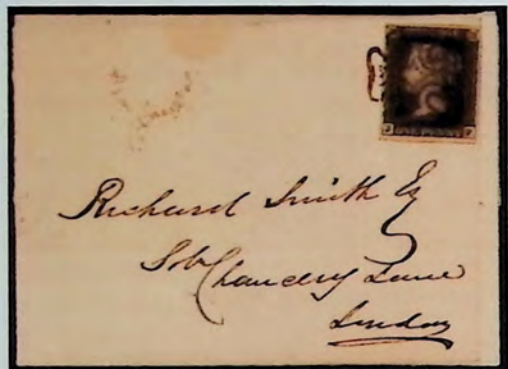 ONE PENNY
Richard Smith Esq
Chancery Lane
London